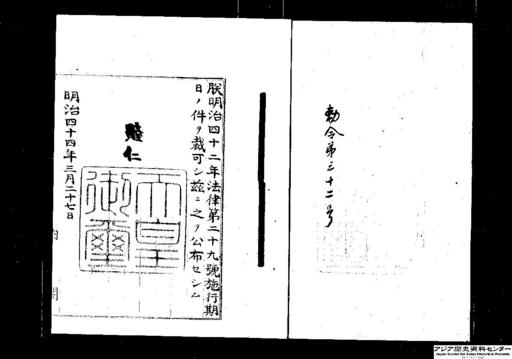 勅令第三十二号
朕明治四十二年法律第二十九號施行期
日ノ件ヲ裁可シ茲ニ之ヲ公布セシム
睦仁
天皇御璽
明治四十四年三月二十七日
内閣
アジア歴史資料センター
Japan Center for Asian Historical Records